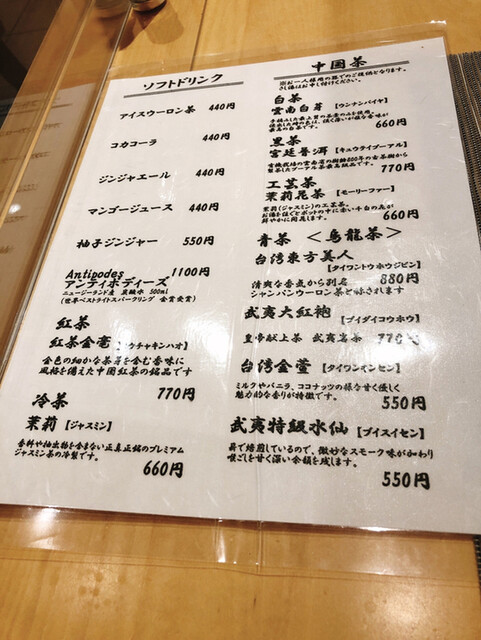 ソフトドリンク
アイスウーロン茶 440円
コカコーラ 440円
ジンジャエール 440円
マンゴージュース 440円
柚子ジンジャー 550円
Antipodes 1100円
アンティポディーズ
ニュージーランド産 炭酸水 500ml
(世界ベストライトスパークリング 金賞受賞)
紅茶
紅茶金毫【ウチャキンハオ】
金色の細かな茶芽を含む香味に
風格を備えた中国紅茶の銘品です
770円
冷茶
茉莉【ジャスミン】
香料や抽出物を含まない正真正銘のプレミアム
ジャスミン茶の冷製です。
660円
中国茶
※お一人様用の器でのご提供となります。
さし湯はお申し付けください。
白茶
雲南白芽【ウンナンパイヤ】
660円
黒茶
宮廷普洱【キュウテイプーアル】
770円
工芸茶
茉莉花茶【モーリーファー】
茉莉(ジャスミン)の工芸茶。
お湯を注ぐとポットの中に赤い千日の花が
鮮やかに開花します。
660円
青茶 <烏龍茶>
台湾東方美人
【タイワントウホウビジン】
清爽な香気から別名 880円
シャンパンウーロン茶と称されます
武夷大紅袍【ブイダイコウホウ】
皇帝献上茶 武夷岩茶 770円
台湾金萱【タイワンキンセン】
ミルクやバニラ、ココナッツの様な甘く優しく
魅力的な香りが特徴です。
550円
武夷特級水仙【ブイスイセン】
炭で焙煎しているので、微妙なスモーク味が加わり
喉ごしを甘く深い余韻を残します。
550円